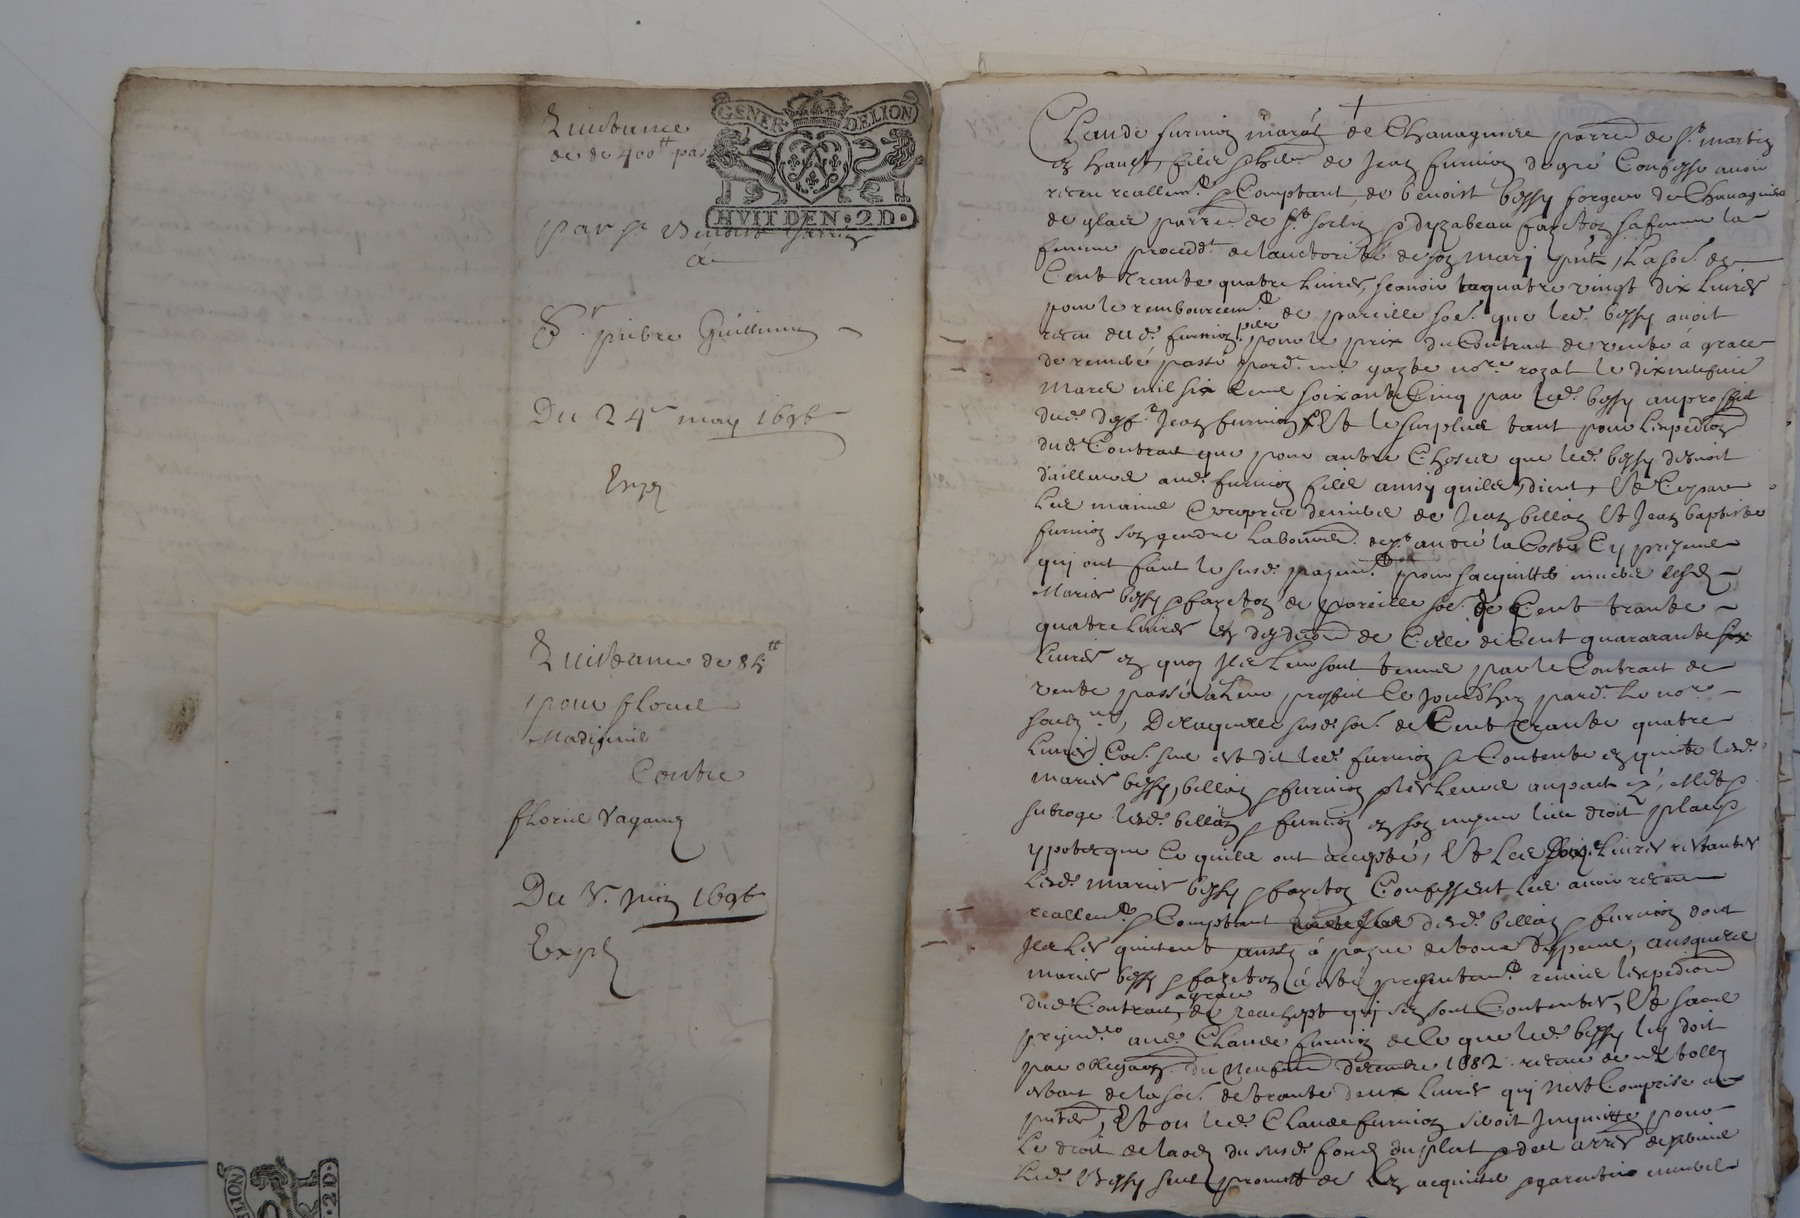 Quictance
de de 400tt pas
GENER DELION
HVIT DEN • 2 D •
par sr Benoist
a
Sr piebre Guilliume
Du 24e may 1696
Expé
Quictance de 84tt
pour florie
Madignie
Contre
florie vaganey
Du 5e Juin 1696
Expé
Claude furnion marâl de Chavagniere parre de st martin
en haut, filz de Jean furnion degré Confesse avoir
receu reallemt & Comptant de benoist bessy forgeur de Chavagniere
de parre de st sorlin & dyzabeau fayeton sa femme la
femme procedt de lauctorité de son mary pnt, la soe de
Cent trante quatre livres, scavoir quatre vingt dix livres
pour le remboursemt de pareille soe que led. bessy avoit
receu dud. furnion pere pour le prix du Contrat de vente à grace
de remeré passé pard. me no.re royal le dixneufvie
Mars mil six Cent soixante Cinq par led. bessy au proffit
dud. deft Jean furnion Et le surplus tant pour lexpedion
dud. Contrat que pour autre Choses que led. bessy debvoit
dailleurs aud. furnion filz ainsy quilz dient, Et Ce par
les mains & propres deniers de Jean billion Et Jean baptiste
furnion son gendre laboure. de st andré la Coste Cy presens
qui ont fait le susd. payemt pour sacquitter envers lesd.
Maries bessy & fayeton de pareille soe de Cent trante
quatre livres en de Celle de Cent quararante six
livres en quoy Ilz leur sont tenus par le Contrat de
vente passé à leur proffit Ce Jourdhuy pard. le nore
soubne, De laquelle susd. soe de Cent trante quatre
livres Coe sus est dit led. furnion se Contente en quitte lesd.
maries bessy, billion & furnion & les leurs au pact &, Mets
subroge lesd. billion & furnion en son mesme lieu droit place &
ypoteque Ce quilz ont accepté, Et les livres restantes
lesd. maries bessy & fayeton Confessent les avoir receu
reallemt & Comptant desd. billion & furnion dont
Ilz les quittent aussy à peyne de tous despens, ausquelz
maries bessy & fayeton à esté presentemt remise lexpedion
dud. Contrat à grace de reachept qui sen sont Contentes, Et sans
prejude aud. Claude furnion de Ce que led. bessy luy doit
par obligaon du neufme decembre 1682 receue de me tolly
estant de la soe de trante deux livres qui nest Comprise au
pnte, Et ou led. Claude furnion seroit Inquietté pour
le droit de laods du susd. fond du plat & des arres de
led. Bessy sus promet de len acquitter & garentir envers